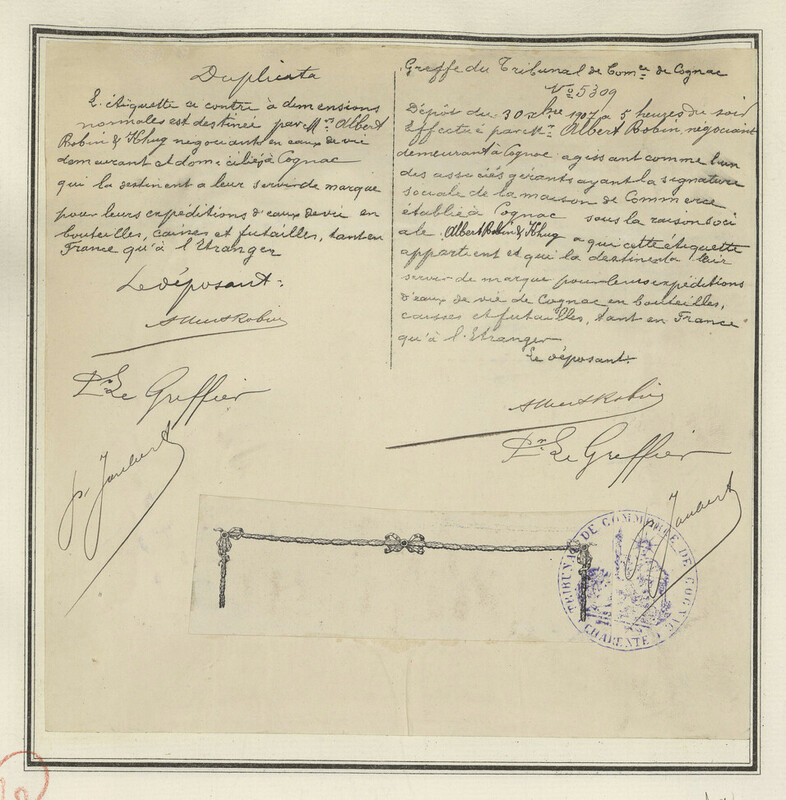 Duplicata
L'étiquette ci contre à demensions
normales est destinée par Mrs Albert
Robin & Khug negociants en eaux de vie
demeurant et domiciliés à Cognac
qui la destinent a leur servir de marque
pour leurs expéditions d'eaux de vie en
bouteilles, caisses et futailles, tant en
France qu'à l'Etranger
Le déposant:
Albert Robin
Pr Le Greffier
Jaubert
Greffe du Tribunal de Comce de Cognac
No 5309
Dépôt du 30 xbre 1907 à 5 heures du soir
Effectué par Mr Albert Robin, négociant
demeurant à Cognac agissant comme l'un
des associés gérants ayant la signature
sociale de la maison de Commerce
établie à Cognac sous la raison soci
ale Albert Robin & Khug a qui cette étiquette
appartient et qui la destine à leur
servir de marque pour leurs expéditions
d'eaux de vie de Cognac en bouteilles,
caisses et futailles, tant en France
qu'à l'Etranger
Le déposant.
Albert Robin
Pr Le Greffier
Jaubert
TRIBUNAL DE COMMERCE DE COGNAC
CHARENTE